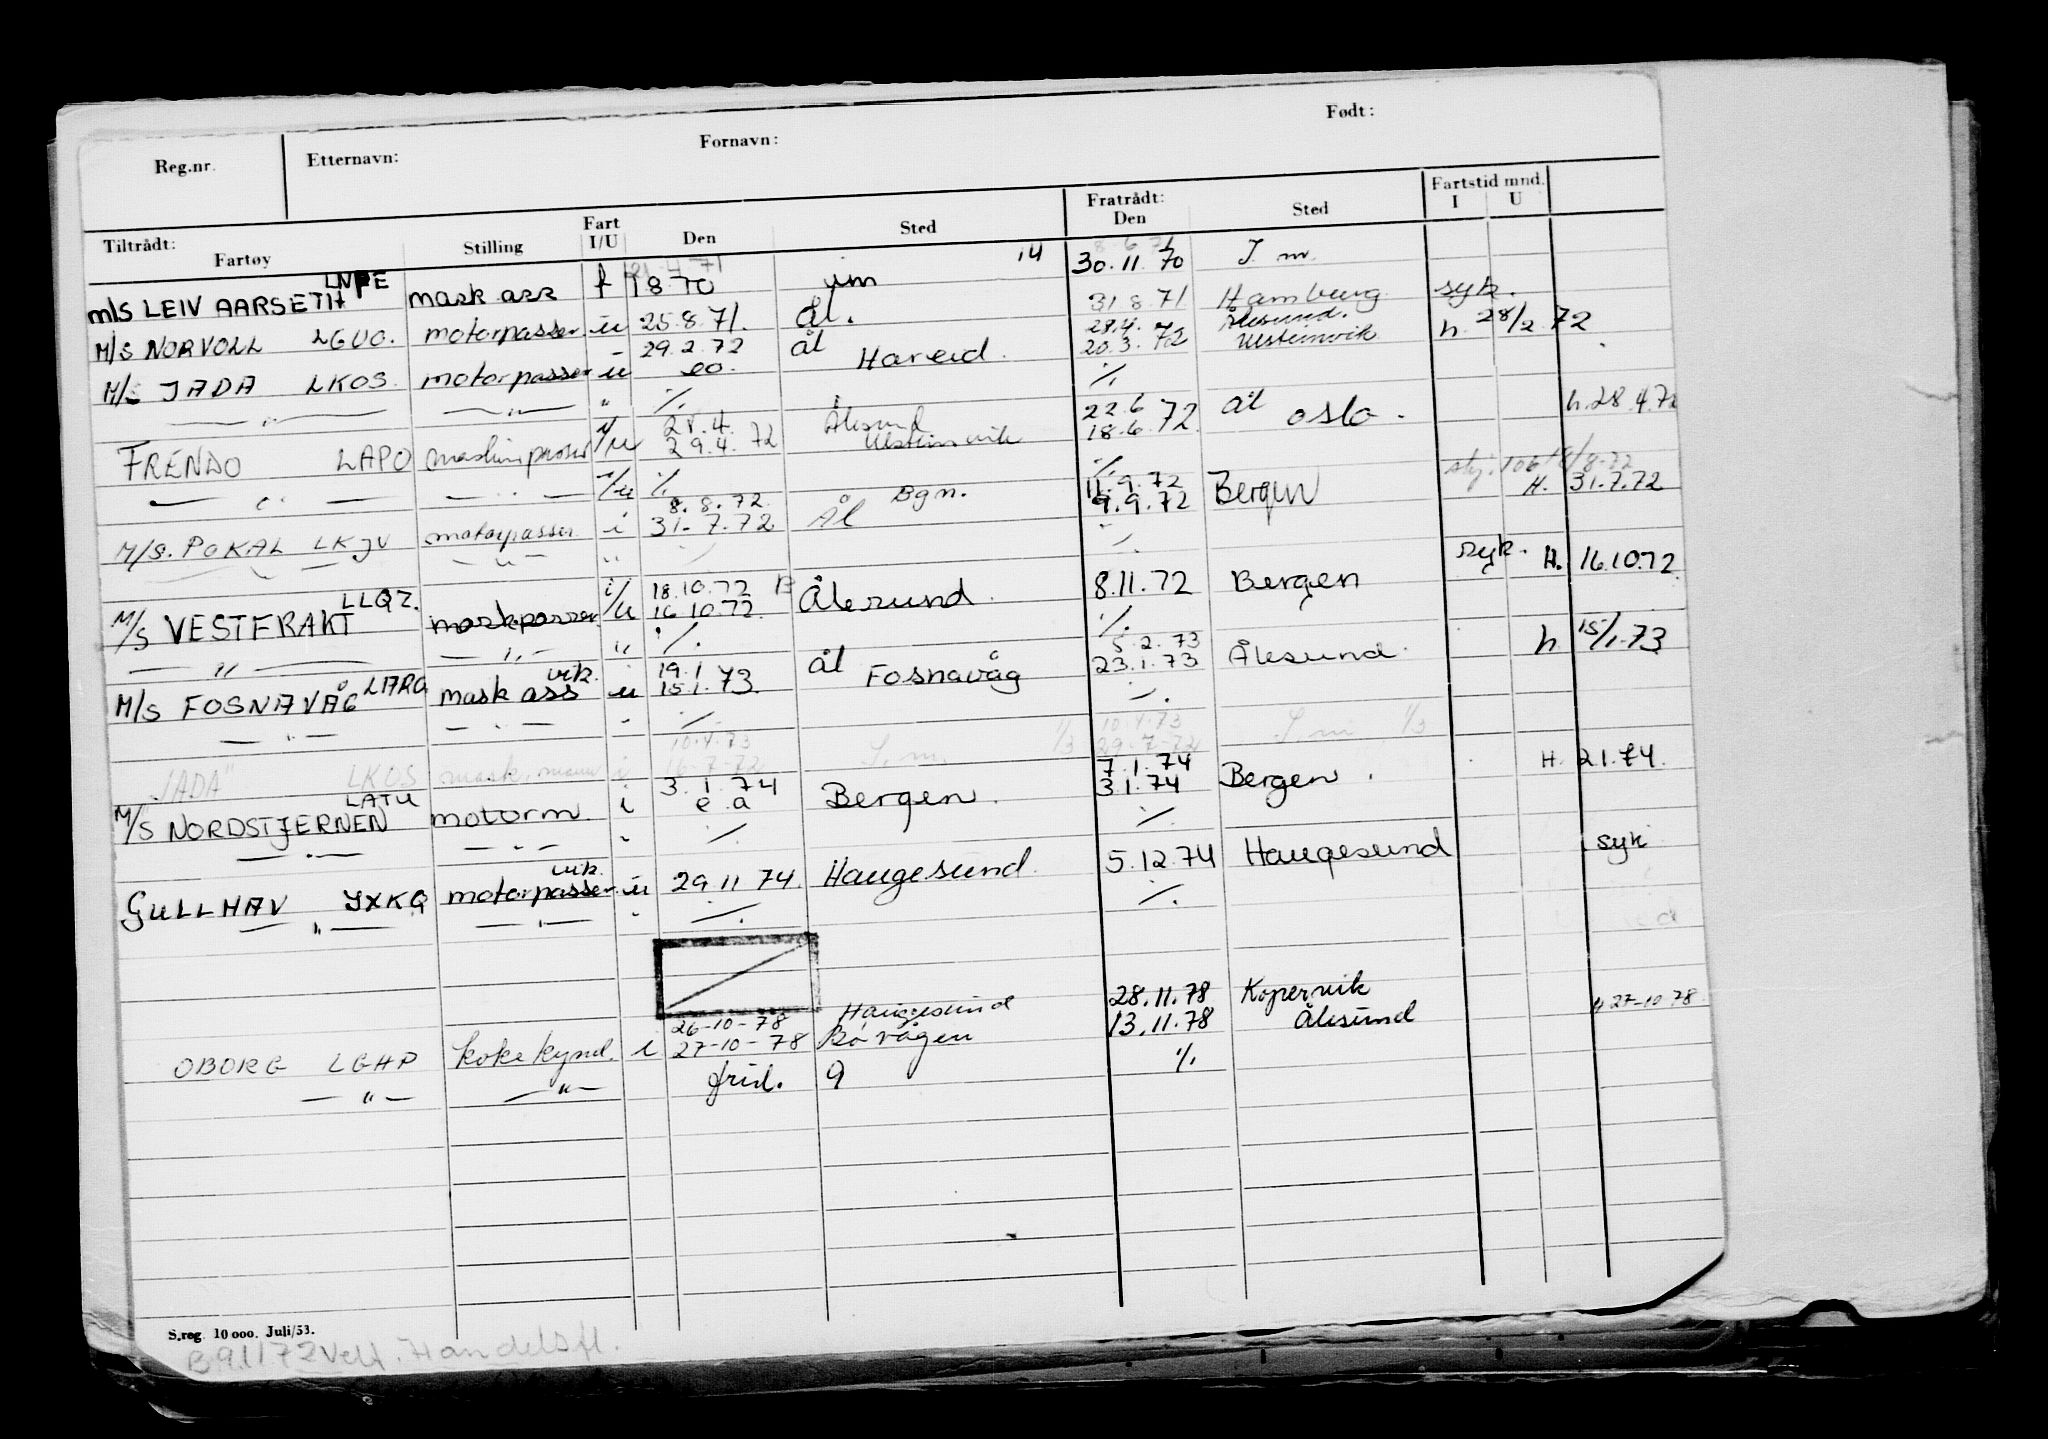 Reg.nr. Etternavn: Fornavn: Født:
Tiltrådt: Fartøy Stilling Fart I/U Den Sted Fratrådt: Den Sted Fartstid mnd. I U
8-6 71
M/S LEIV AARSETH LNPE mask ass f 1 8 70 im 14 30.11.70 I m.
M/S NORVOLL LGUO. motorpasser u 25.8.71. Ål. 31.8.71 Hamburg syk.
29.2.72 Ål 28.4. Ålesund.
M/S JADA LKOS. motorpasser u eo. Hareid 20.3.72 Ulsteinvik h. 28/2.72
— " — — " — " ·/. ·/.
28.4. Ålesund 22.6 Ål
FRENDO LAPO maskinpasser i/u 29.4.72 Ulsteinvik 18.6.72 Oslo. h.28.4.72
— " — — " — i/u ·/. ·/.
8.8.72 Bgn. 11.9.72
M/S. POKAL LKJV motorpasser i 31.7.72 Ål 9.9.72 Bergen H. 31.7.72
— " — — " — " ·/. ·/.
18.10.72
M/S VESTFRAKT LLQZ. maskpasser i/u 16.10.72 Ålesund 8.11.72 Bergen syk. H. 16.10.72
— " — — " — " ·/. ·/.
19.1 Ål 5.2.73
M/S FOSNAVÅG LARG mask ass vik. u 15.1.73 Fosnavåg 23.1.73 Ålesund. h 15/1-73
— " — — " — " ·/. ·/.
10.4.73 10.4.73
"JADA" LKOS mask.mann i 16-7-72 I.m. 1/3 29-7-72 I m 1/3
3.1.74 7.1.74
M/S NORDSTJERNEN LATU motorm. i e a Bergen. 3.1.74 Bergen. H. 2.1.74.
— " — — " — " ·/. ·/.
GULLHAV JXKG motorpasser vik. u 29 11 74. Haugesund. 5.12.74 Haugesund syk
— " — — " — " ·/. ·/.
26-10-78 Haugesund 28.11.78 Kopervik
OBORG LGHP kokekynd. i 27-10-78 Bøvågen 13.11.78 Ålesund h 27-10 78
— " — — " — frid. 9 ·/.
S.reg. 10 000. Juli/53.
B91172 Velf. Handelsfl.